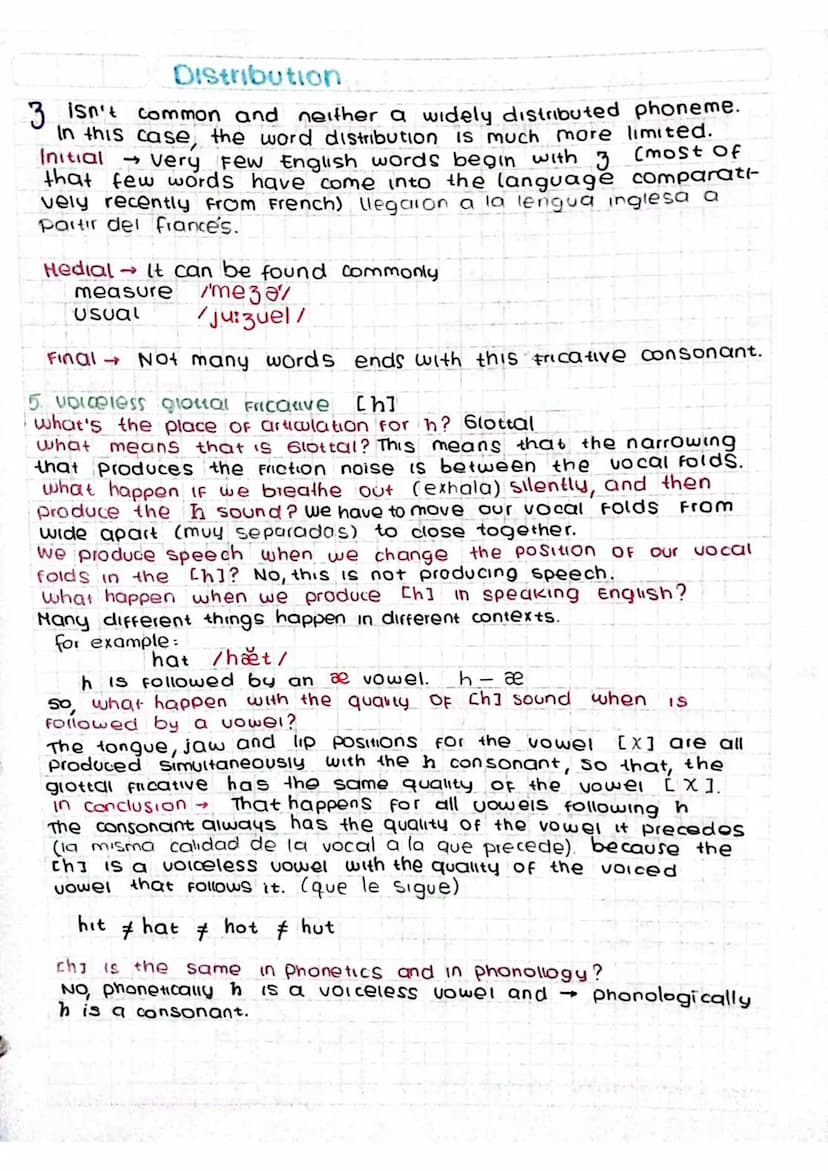 Distribution
ʒ isn't common and neither a widely distributed phoneme.
In this case, the word distribution is much more limited.
Initial → Very few English words begin with ʒ (most of
that few words have come into the language comparati-
vely recently from French) llegaron a la lengua inglesa a
partir del francés.
Medial → It can be found commonly
measure /'meʒə'/
usual /juːʒuel/
Final → Not many words ends with this fricative consonant.
5 voiceless glottal fricative [h]
What's the place of articulation for h? Glottal
what means that is Glottal? This means that the narrowing
that produces the friction noise is between the vocal folds.
what happen if we breathe out (exhala) silently, and then
produce the h sound? we have to move our vocal folds from
wide apart (muy separados) to close together.
We produce speech when we change the position of our vocal
folds in the [h]? No, this is not producing speech.
What happen when we produce [h] in speaking English?
Many different things happen in different contexts.
for example:
hat /hæt/
h is followed by an æ vowel. h – æ
so, what happen with the quality of [h] sound when is
followed by a vowel?
The tongue, jaw and lip positions for the vowel [x] are all
produced simultaneously with the h consonant, so that, the
glottal fricative has the same quality of the vowel [x].
In conclusion → That happens for all vowels following h
The consonant always has the quality of the vowel it precedes
(la misma calidad de la vocal a la que precede). because the
[h] is a voiceless vowel with the quality of the voiced
vowel that follows it. (que le sigue)
hit ≠ hat ≠ hot ≠ hut
[h] is the same in phonetics and in phonollogy?
No, phonetically h is a voiceless vowel and → phonologically
h is a consonant.